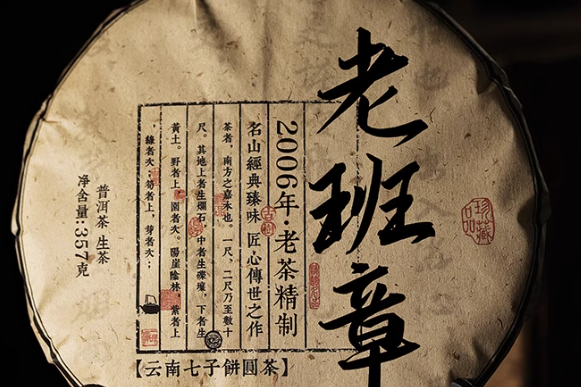 珍藏品
老班章
2006年·老茶精制
名山經典臻味 匠心傳世之作
茶者,南方之嘉木也。一尺、二尺乃至數十
尺。其地上者生爛石,中者生礫壤,下者生
黃土。野者上,園者次。陽崖陰林,紫者上
綠者次;筍者上,芽者次;
普洱茶 生茶
净含量:357克
【云南七子餅圓茶】